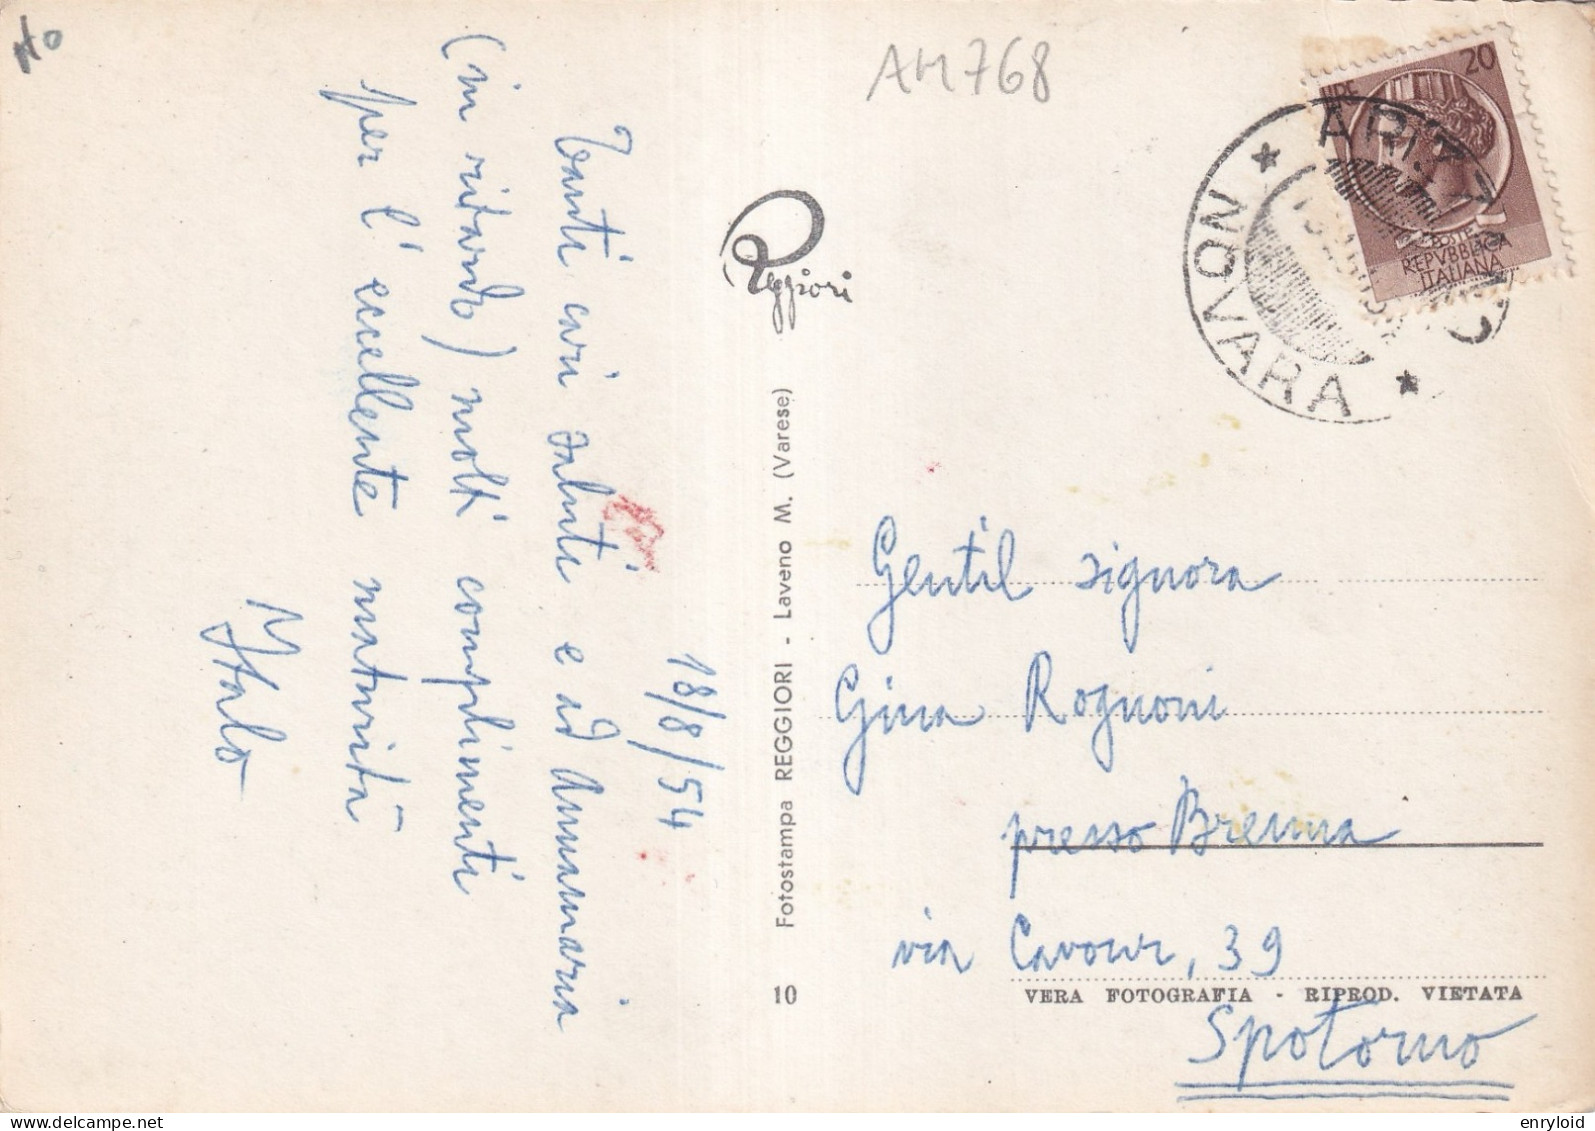 No
AM768
18/8/54
Tanti cari saluti e ad Annamaria
(in ritardo) molti complimenti
per l'eccellente maturità
Italo
Reggiori
Fotostampa REGGIORI - Laveno M. (Varese)
10
20
LIRE
POSTE
REPVBBLICA
ITALIANA
NOVARA
Gentil signora
Gina Rognoni
presso Brenna
via Cavour, 39
VERA FOTOGRAFIA - RIPROD. VIETATA
Spotorno
enryloid